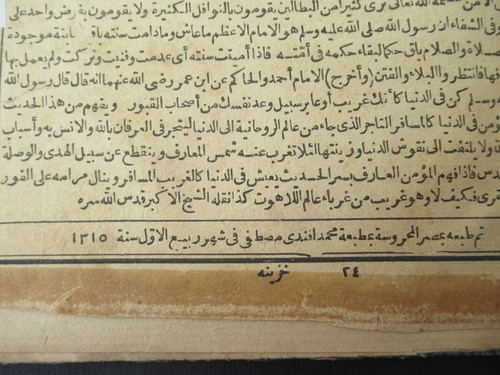 الله تعالى ترى كثيرا من البطالين يقومون بالنوافل الكثيرة ولا يقومون بفرض واحد على
وفى الشفاء ان رسول الله صلى الله عليه وسلم هو الامام الاعظم ما عاش وما دامت سنته باقية موجودة
الصلاة والسلام باق حكما لبقاء حكمه فى أمته فاذا أميتت سنته أى عدمت وفنيت وتركت ولم يعمل بها
فانتظروا البلاء والفتن (وأخرج) الامام أحمد والحاكم عن ابن عمر رضى الله عنهما انه قال قال رسول الله
وسلم كن فى الدنيا كأنك غريب أو عابر سبيل وعد نفسك من أصحاب القبور ويفهم من هذا الحديث
مؤمن فى الدنيا كالمسافر التاجر الذى جاء من عالم الروحانية الى الدنيا ليتجر فى العرفان بالله والانس به وأسباب
ولا يلتفت الى نقوش الدنيا وزينتها لئلا تغرب عنه شمس المعارف وينقطع عن سبيل الهدى والوصلة
قدس فاذا فهم المؤمن العارف بسر الحديث يعيش فى الدنيا كالغريب المسافر وينال مرامه على الفور
فكيف لا وهو غريب من غرباء عالم اللاهوت كذا نقله الشيخ الاكبر قدس الله سره
تم طبعه بمصر المحروسة بمطبعة محمد افندى مصطفى فى شهر ربيع الاول سنة ١٣١٥
٢٤ خزينه